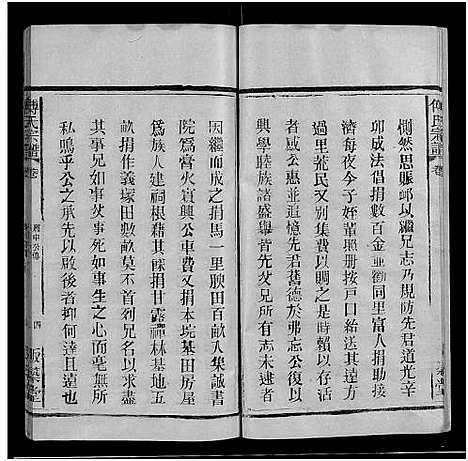 惻然思賑卹以繼兄志乃規防先君道光辛
卯成法倡捐數百金並勸同里富人捐助接
濟每夜令子姪輩照册按戶口給其遠方
過里菜民又別有費以賙之一時賴以存活
者且甚衆並追憶先君舊德於弗忘公復以
興學睦族諸盛舉首先次兄所有志未逮者
因繼而成之捐馬一里腴田百畝入集誠書
院爲膏火賓興公車費又捐本垸基田房屋
爲族人建祠根藉其龢捐甘露禪林基地五
畝捐作義塚田數畝莫不名以次兄以求盡
其事兄如事父事死如事生之心而毫無所
私嗚乎公之承先以啟後者抑何達且遠也
傅氏宗譜 卷
四
版築堂
傅氏宗譜 卷